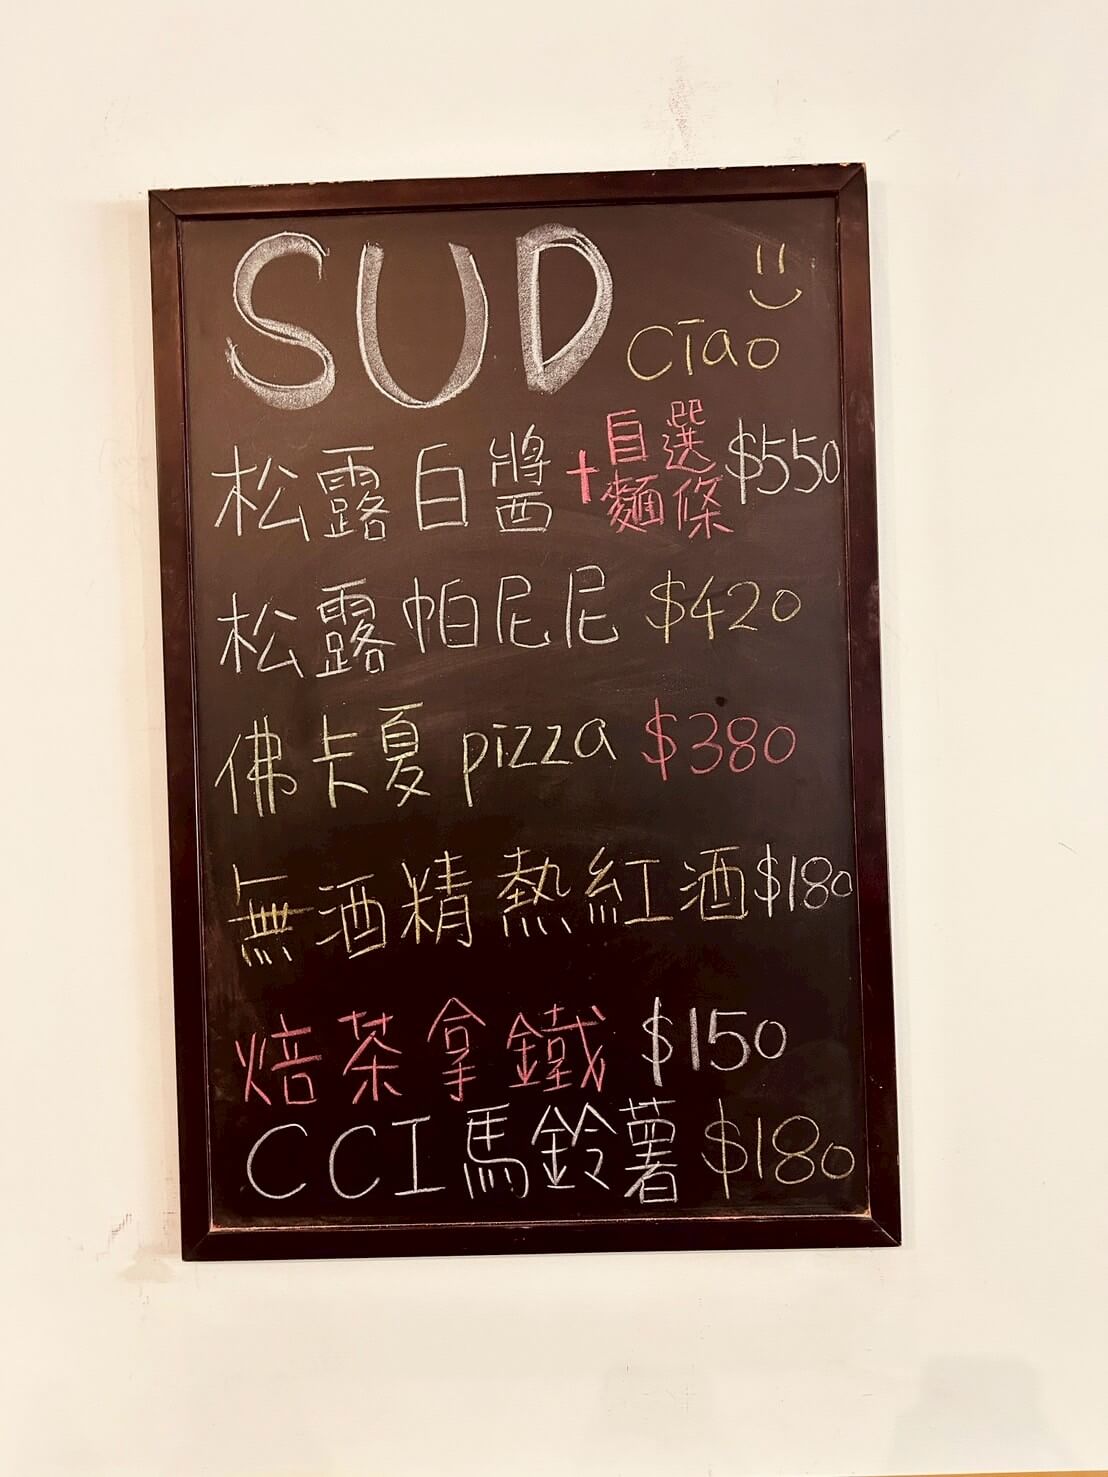 SUD Ciao
松露白醬+自選麵條 $550
松露帕尼尼 $420
佛卡夏 pizza $380
無酒精熱紅酒 $180
焙茶拿鐵 $150
CCI馬鈴薯 $180